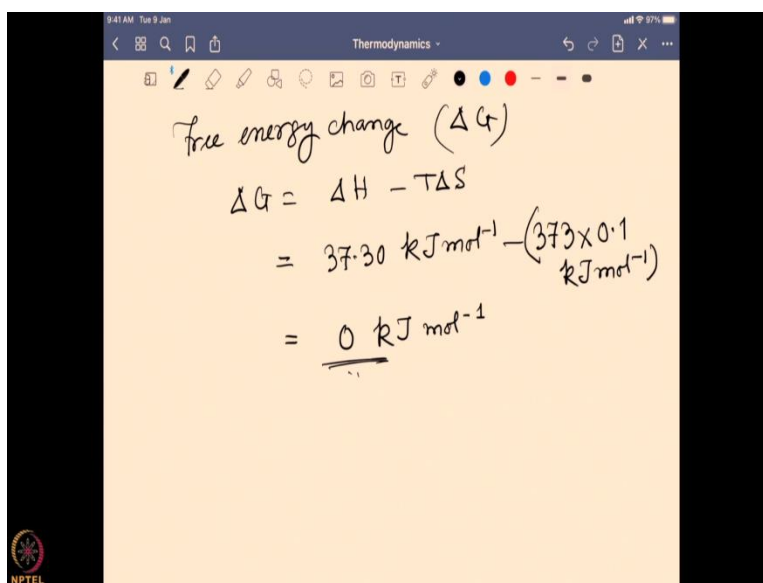 9:41 AM Tue 9 Jan
97%
Thermodynamics
Free energy change (ΔG)
ΔG = ΔH − TΔS
= 37.30 kJ mol⁻¹ − (373 × 0.1
kJ mol⁻¹)
= 0 kJ mol⁻¹
NPTEL